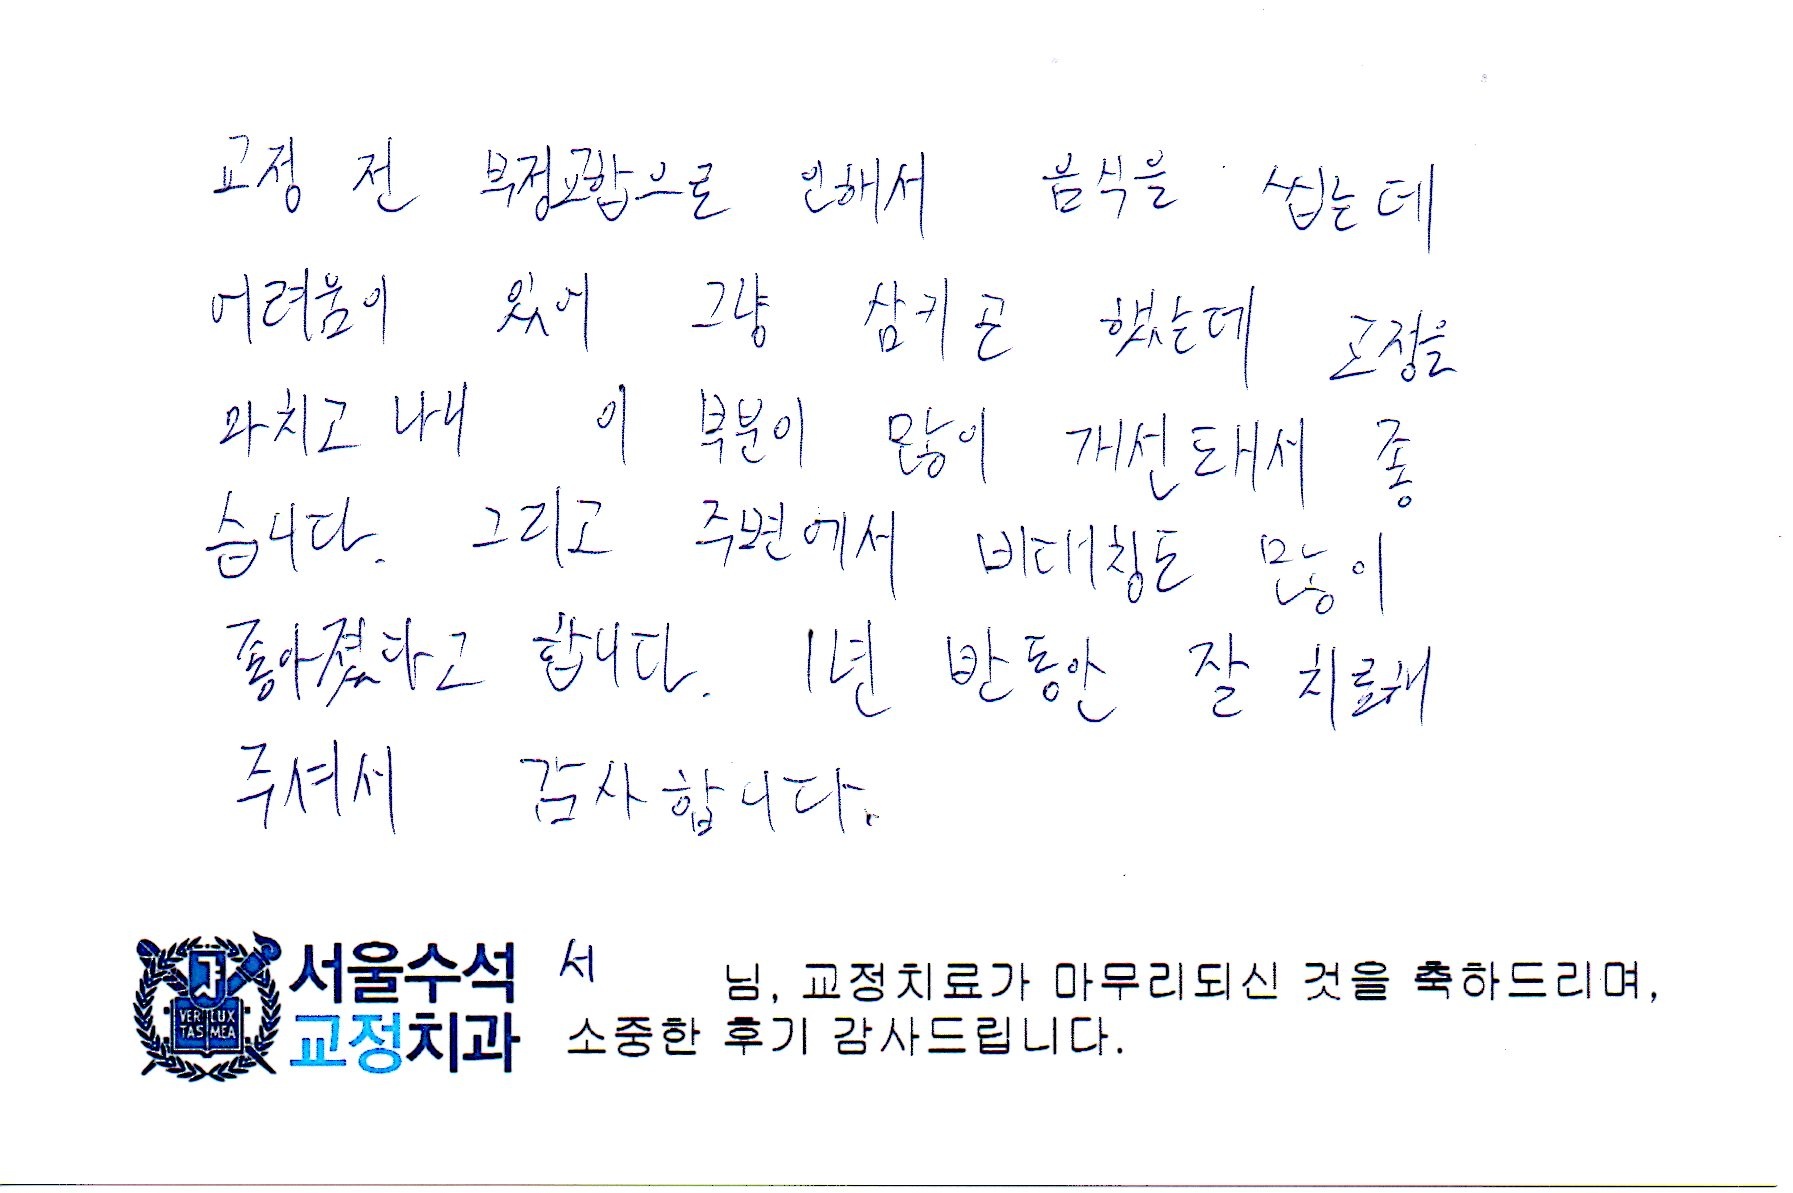 교정 전 부정교합으로 인해서 음식을 씹는데
어려움이 있어 그냥 삼키곤 했는데 교정을
마치고 나니 이 부분이 많이 개선돼서 좋
습니다. 그리고 주변에서 비대칭도 많이
좋아졌다고 합니다. 1년 반동안 잘 치료해
주셔서 감사합니다.
서울수석
교정치과
VERI LUX
TAS MEA
서 님, 교정치료가 마무리되신 것을 축하드리며,
소중한 후기 감사드립니다.